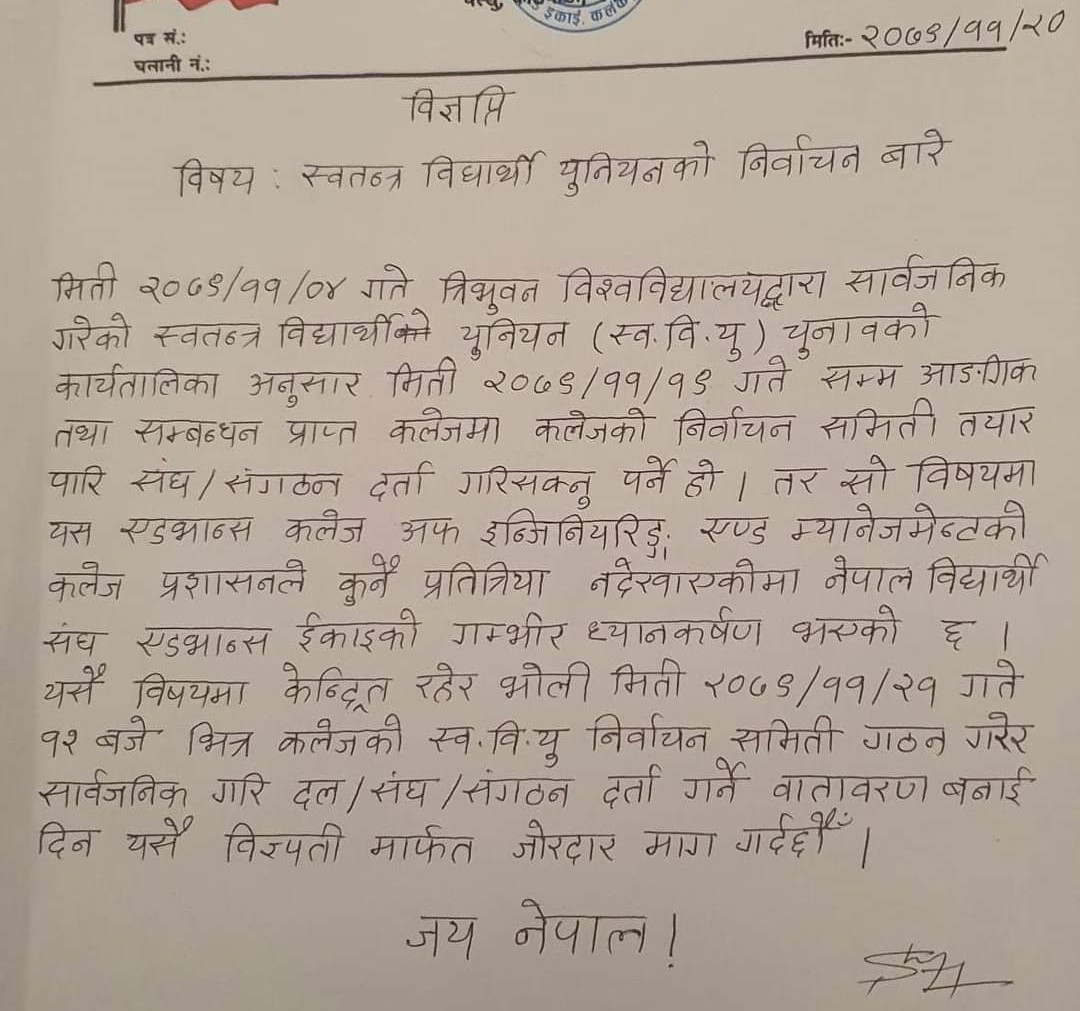 इकाई, कलंक
पत्र सं.:
चलानी नं.:
मितिः- २०७९/११/२०
विज्ञप्ति
विषय : स्वतन्त्र विद्यार्थी युनियनको निर्वाचन बारे
मिती २०७९/११/०४ गते त्रिभुवन विश्वविद्यालयद्वारा सार्वजनिक
गरेको स्वतन्त्र विद्यार्थी युनियन (स्व.वि.यु) चुनावको
कार्यतालिका अनुसार मिती २०७९/११/१९ गते सम्म आङगिक
तथा सम्बन्धन प्राप्त कलेजमा कलेजको निर्वाचन समिती तयार
पारि संघ/संगठन दर्ता गरिसक्नु पर्ने हो । तर सो विषयमा
यस एडभान्स कलेज अफ इन्जिनियरिङ्ग एण्ड म्यानेजमेन्टको
कलेज प्रशासनले कुनै प्रतित्रिया नदेखाएकोमा नेपाल विद्यार्थी
संघ एडभान्स ईकाइको गम्भीर ध्यानकर्षण भएको छ ।
यसै विषयमा केन्द्रित रहेर भोली मिती २०७९/११/२१ गते
१२ बजे भित्र कलेजको स्व.वि.यु निर्वाचन समिती गठन गरेर
सार्वजनिक गरि दल/संघ/संगठन दर्ता गर्ने वातावरण बनाई
दिन यसै विज्ञपती मार्फत जोरदार माग गर्दछौँ ।
जय नेपाल !